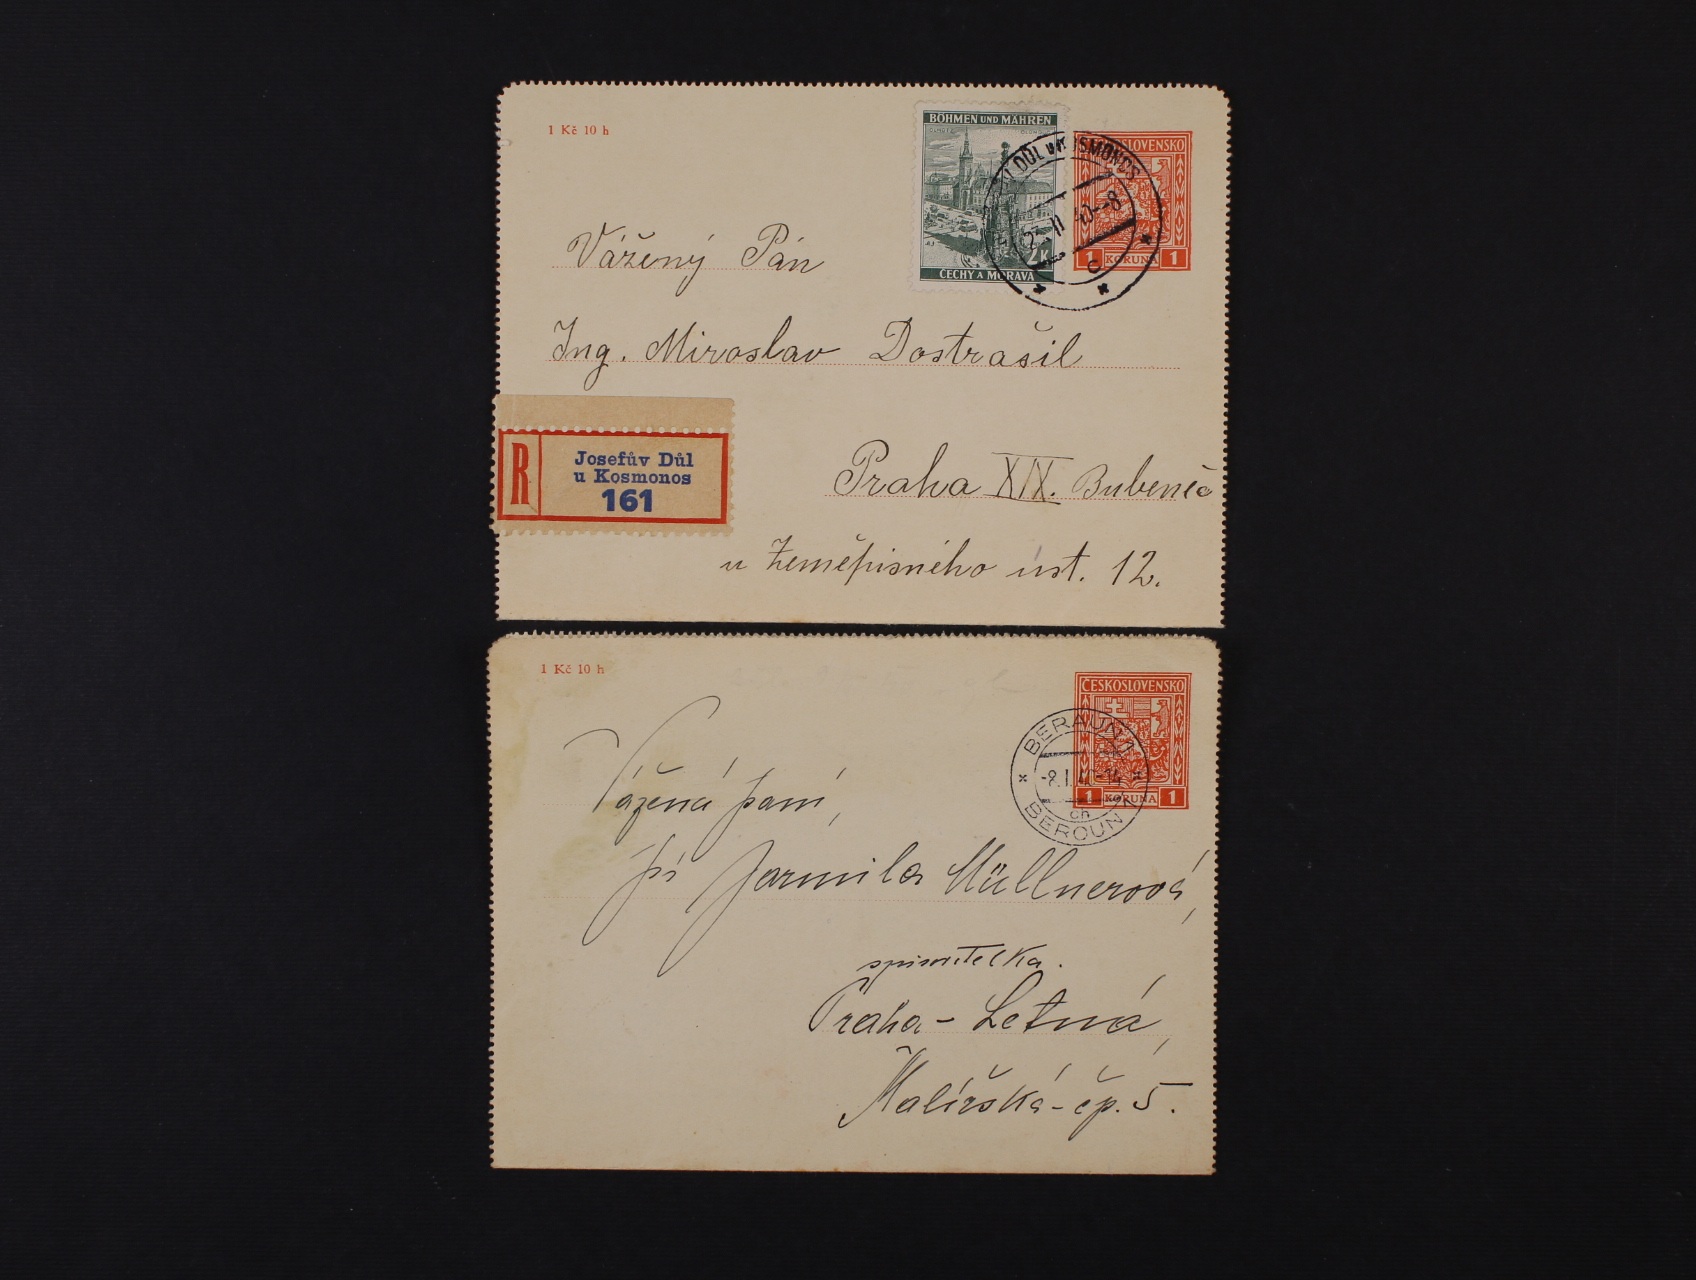 1 Kč 10 h
BÖHMEN UND MÄHREN
OLOMOUC
2K
ČECHY A MORAVA
DŮL U KOSMONOS
C
1 KORUNA 1
Vážený Pán
Ing. Miroslav Dostrašil
R
Josefův Důl
u Kosmonos
161
Praha XIX. Bubeneč
u Zeměpisného úst. 12.
1 Kč 10 h
ČESKOSLOVENSKO
1 KORUNA 1
BERAUN 1
ch
BEROUN 1
Vážená paní,
pí Jarmila Müllnerová,
spisovatelka.
Praha - Letná,
Malířská - čp. 5.